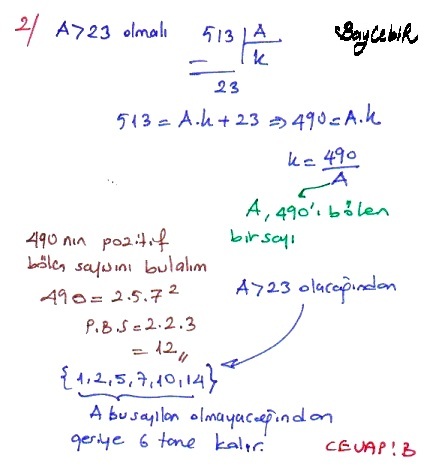 2/ A>23 olmalı
513 | A
k
23
BayCebiR
513 = A.k + 23 ⇒ 490 = A.k
k = 490/A
A, 490'ı bölen
bir sayı
490 nın pozitif
bölen sayısını bulalım
490 = 2.5.7²
P.B.S = 2.2.3
= 12,,
A>23 olacağından
{1,2,5,7,10,14}
A bu sayıları olmayacağından
geriye 6 tane kalır.
CEVAP: B